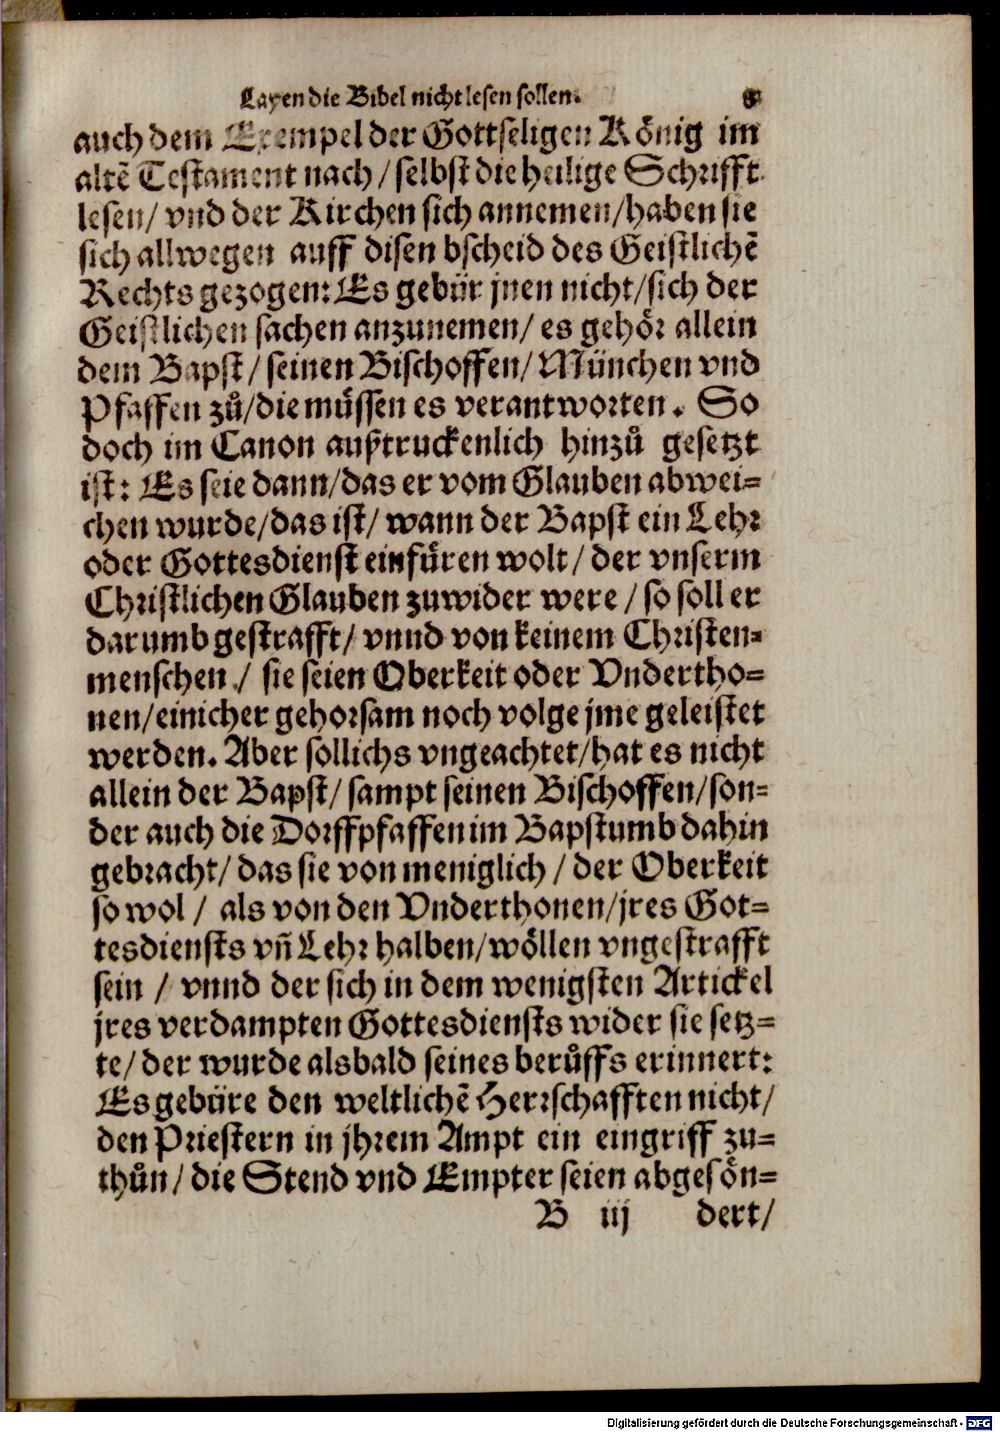 Layen die Bibel nicht lesen sollen.
auch dem Exempel der Gottseligen König im
altē Testament nach / selbst die heilige Schrifft
lesen / vnd der Kirchen sich annemen / haben sie
sich allwegen auff disen bscheid des Geistlichē
Rechts gezogen: Es gebür jnen nicht / sich der
Geistlichen sachen anzunemen / es gehör allein
dem Bapst / seinen Bischoffen / München vnd
Pfaffen zů / die müssen es verantworten. So
doch im Canon außtruckenlich hinzů gesetzt
ist: Es seie dann / das er vom Glauben abwei=
chen wurde / das ist / wann der Bapst ein Lehr
oder Gottesdienst einfüren wolt / der vnserm
Christlichen Glauben zuwider were / so soll er
darumb gestrafft / vnnd von keinem Christen=
menschen / sie seien Oberkeit oder Vndertho=
nen / einicher gehorsam noch volge jme geleistet
werden. Aber sollichs vngeachtet / hat es nicht
allein der Bapst / sampt seinen Bischoffen / son=
der auch die Dorffpfaffen im Bapstumb dahin
gebracht / das sie von meniglich / der Oberkeit
so wol / als von den Vnderthonen / jres Got=
tesdiensts vñ Lehr halben / wöllen vngestrafft
sein / vnnd der sich in dem wenigsten Artickel
jres verdampten Gottesdiensts wider sie setz=
te / der wurde alsbald seines berůffs erinnert:
Es gebüre den weltlichē Herrschafften nicht /
den Priestern in jhrem Ampt ein eingriff zu=
thůn / die Stend vnd Empter seien abgesön=
B iij dert /
Digitalisierung gefördert durch die Deutsche Forschungsgemeinschaft - DFG